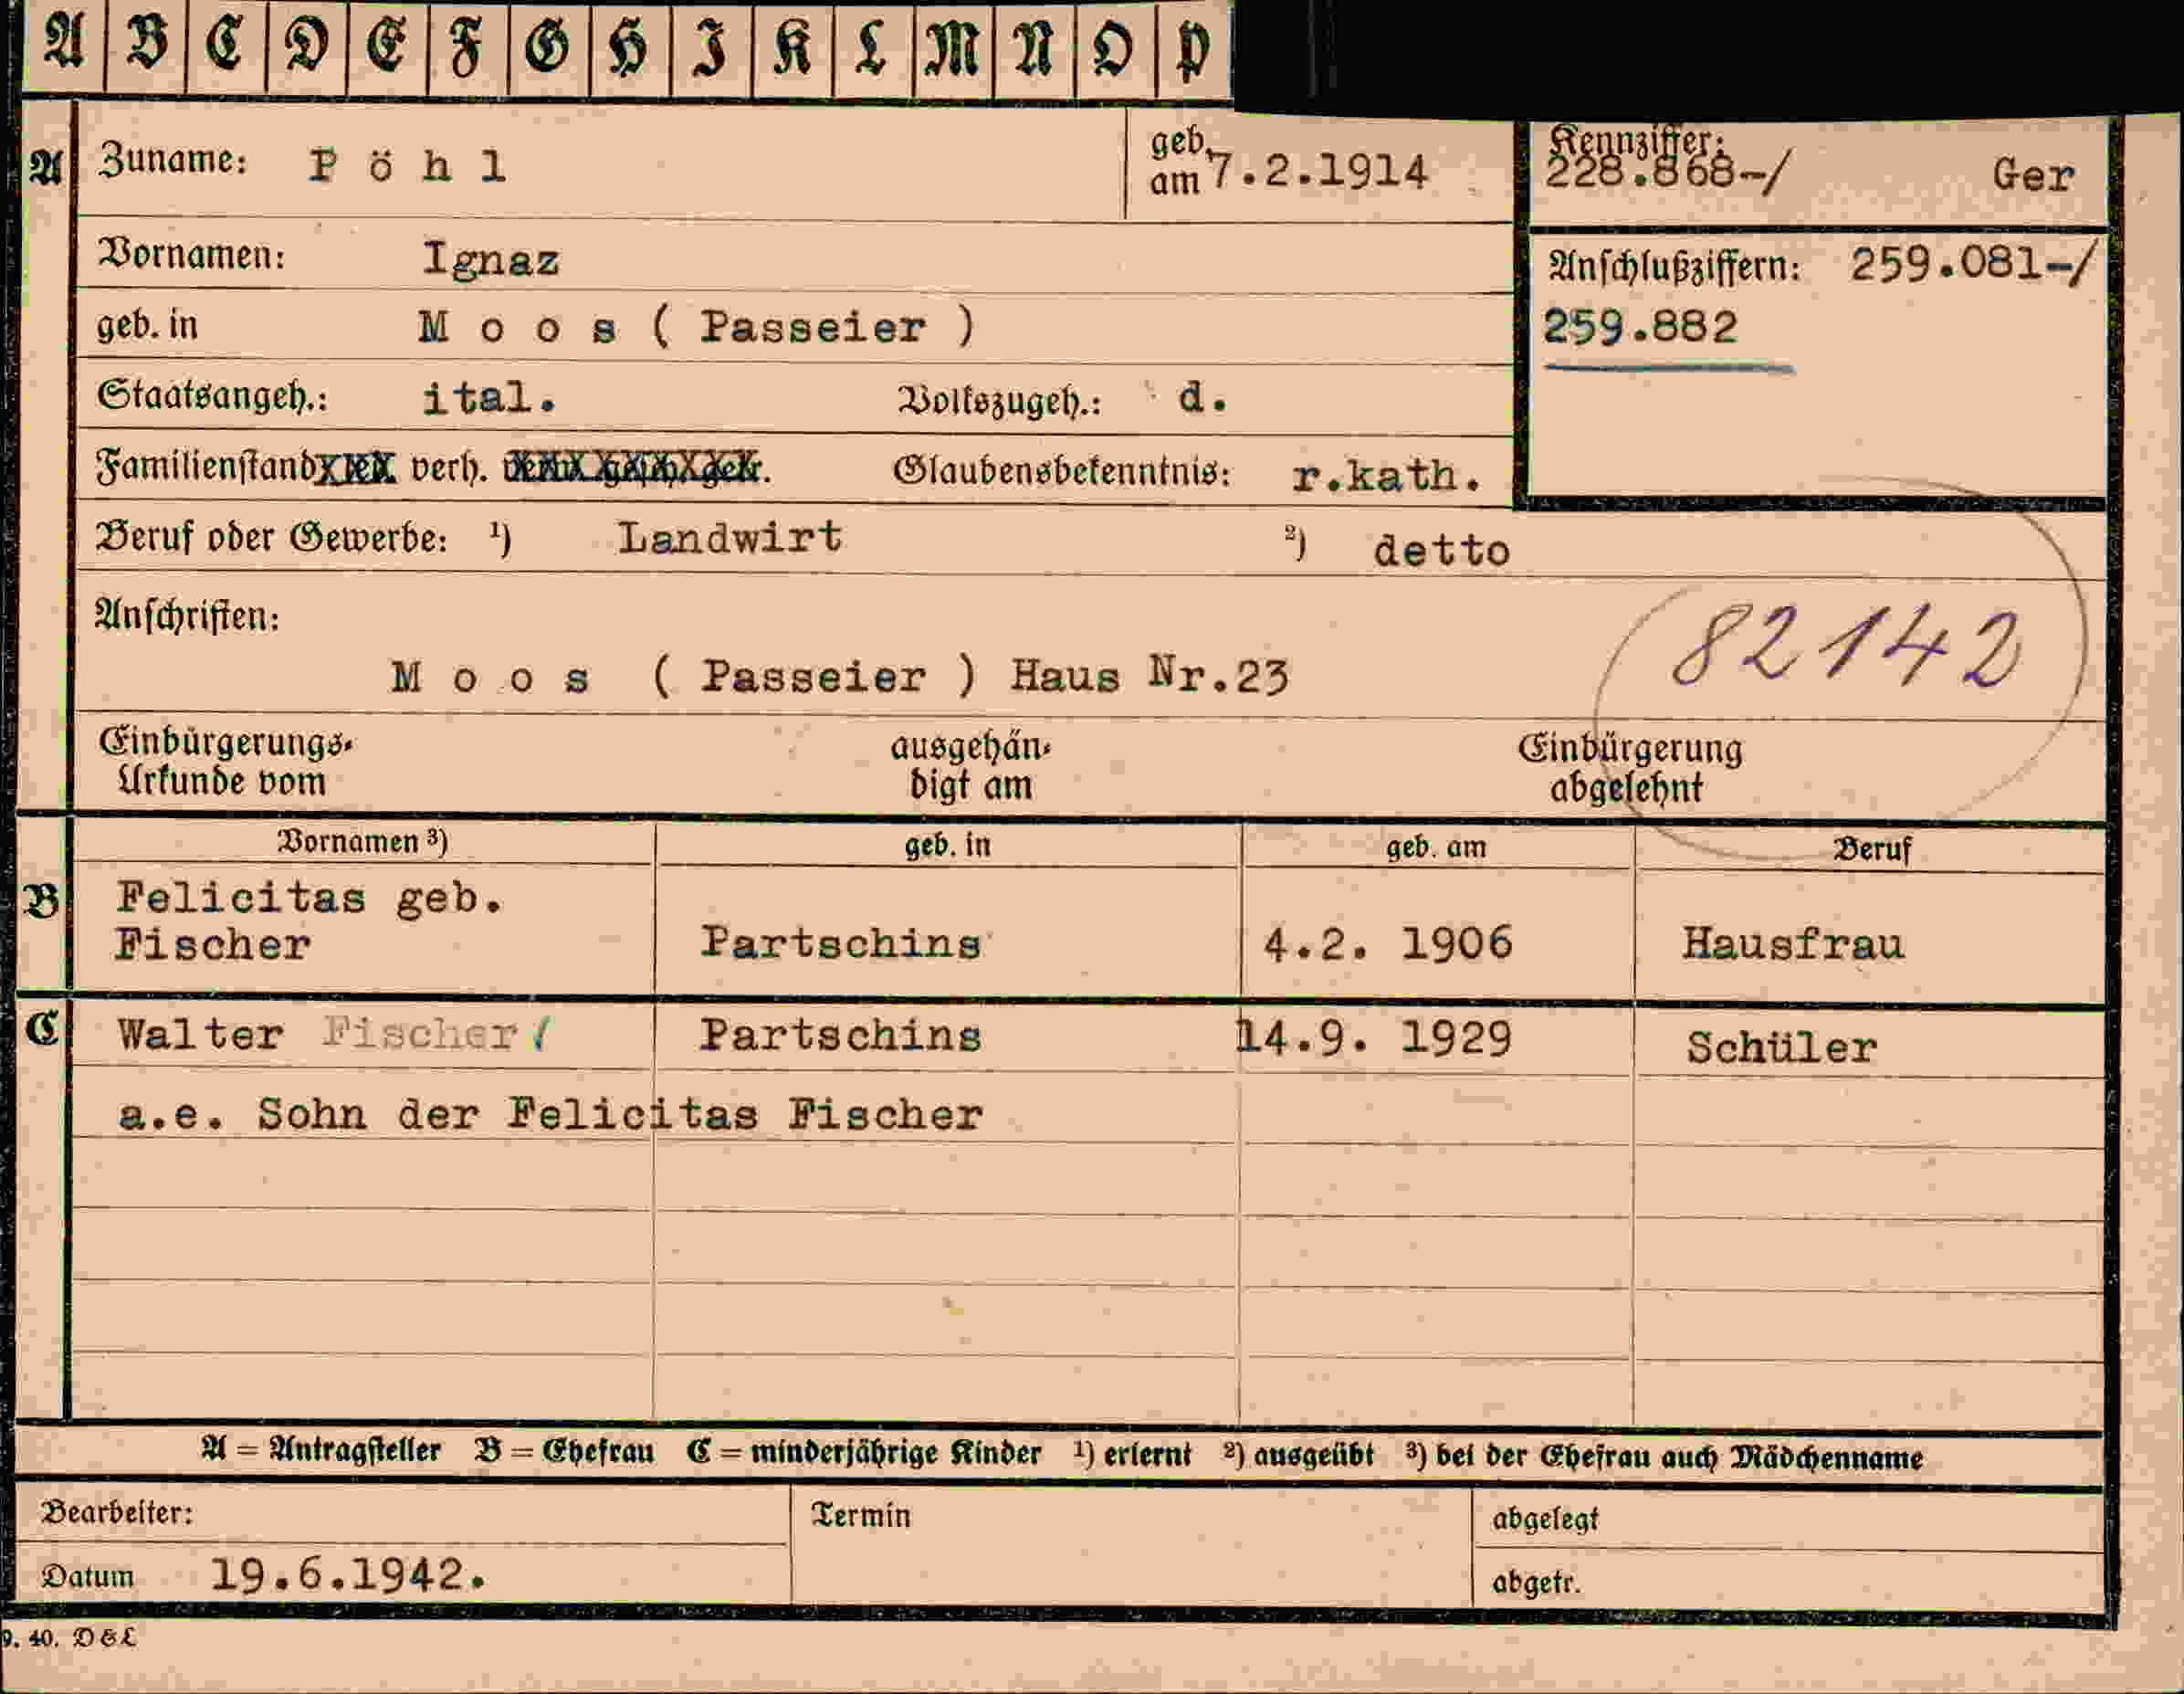 A B C D E F G H I K L M N O P
A Zuname: P ö h l geb. am 7.2.1914
Kennziffer:
228.868-/ Ger
Vornamen: Ignaz
Anschlußziffern: 259.081-/
259.882
geb. in M o o s ( Passeier )
Staatsangeh.: ital. Volkszugeh.: d.
Familienstand verh. Glaubensbekenntnis: r.kath.
Beruf oder Gewerbe: 1) Landwirt 2) detto
Anschriften:
82142
M o o s ( Passeier ) Haus Nr.23
Einbürgerungs- ausgehän- Einbürgerung
Urkunde vom digt am abgelehnt
Vornamen 3) geb. in geb. am Beruf
B Felicitas geb.
Fischer Partschins 4.2. 1906 Hausfrau
C Walter Fischer/ Partschins 14.9. 1929 Schüler
a.e. Sohn der Felicitas Fischer
A = Antragsteller B = Ehefrau C = minderjährige Kinder 1) erlernt 2) ausgeübt 3) bei der Ehefrau auch Mädchenname
Bearbeiter: Termin abgelegt
Datum 19.6.1942. abgetr.
9. 40. D & L